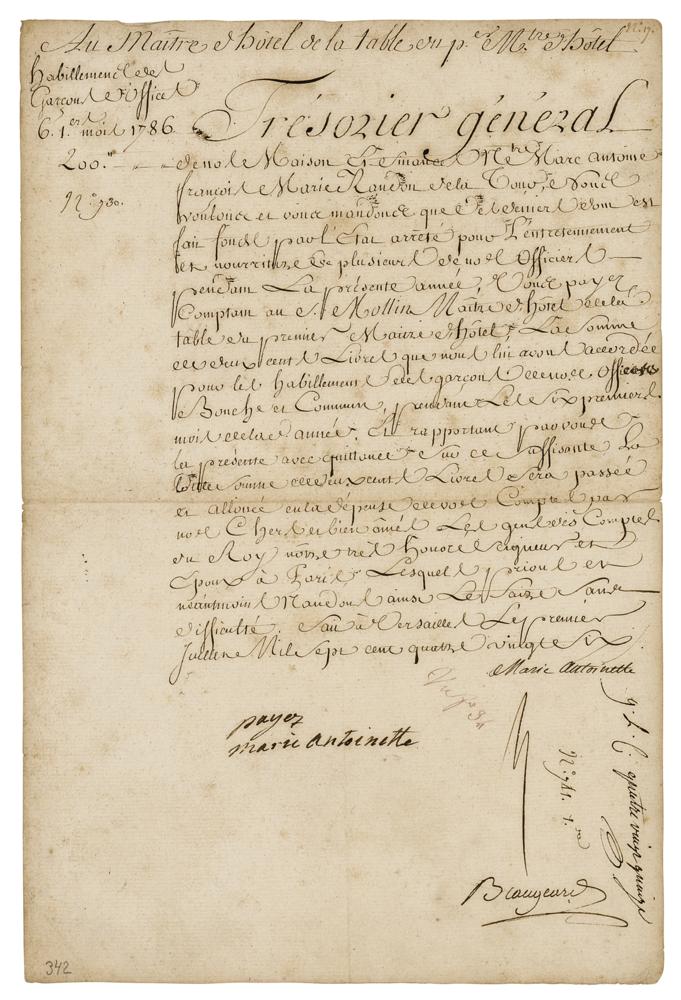 Au Maître d'hôtel de la table du p.er M.tre d'hôtel
N.º 17.
habillement des
Garçons d'Office
6. 1.ers mois 1786
200.''
N.º 930.
Trésorier général
de notre Maison M.tre Marc antoine
françois Marie Randon de la Tour, Nous
voulons et vous mandons que des deniers dont est
fait fonds par l'Etat arrêté pour l'entretennement
et nourriture de plusieurs de nos Officiers
pendant La présente année, Vous payez
Comptant au S.r Mollin Maître d'hôtel de la
table du premier Maitre d'hôtel, La Somme
de deux cents Livres que nous lui avons accordée
pour les habillements des garçons de nos Offices
de Bouche et Commun, pendant Les Six premiers
mois de lad. année. Et rapportant par vous
la présente avec quittance sur ce suffisante La
dite Somme de deux cents Livres Sera passée
et allouée en la dépense de vos Comptes par
nos Chers et bien âmés Les gens des Comptes
du Roy nôtre très honoré Seigneur et
Epoux à Paris Lesquels prions et
néantmoins Mandons ainsi Le faire Sans
difficulté. fait à Versailles Le premier
Juillet Mil Sept cent quatre vingt Six
Marie Antoinette
payez
marie antoinette
g. L. C. quatre vingt quinze
N.º 941. 1.
Beaugeard
342